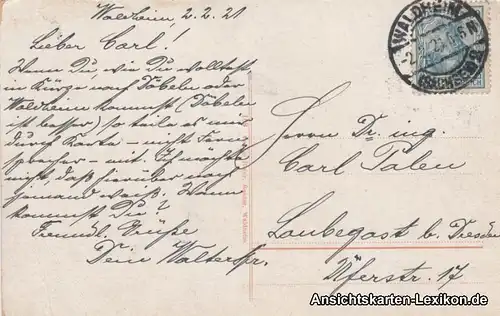 Waldheim, 2.2.21
Lieber Carl!
Wenn Du, wie Du wolltest
in Kürze nach Döbeln oder
Waldheim kommst (Döbeln
ist besser) so teile es mir
durch Karte – nicht Fern
sprecher – mit. Ich möchte
nicht, daß hierüber noch
jemand weiß. Wann
kommst Du?
Freundl. Grüße
Dein Walter
WALDHEIM
(SACHSEN)
Herrn Dr. ing.
Carl Palen
Laubegast b. Dresden
Uferstr. 17
Ansichtskarten-Lexikon.de